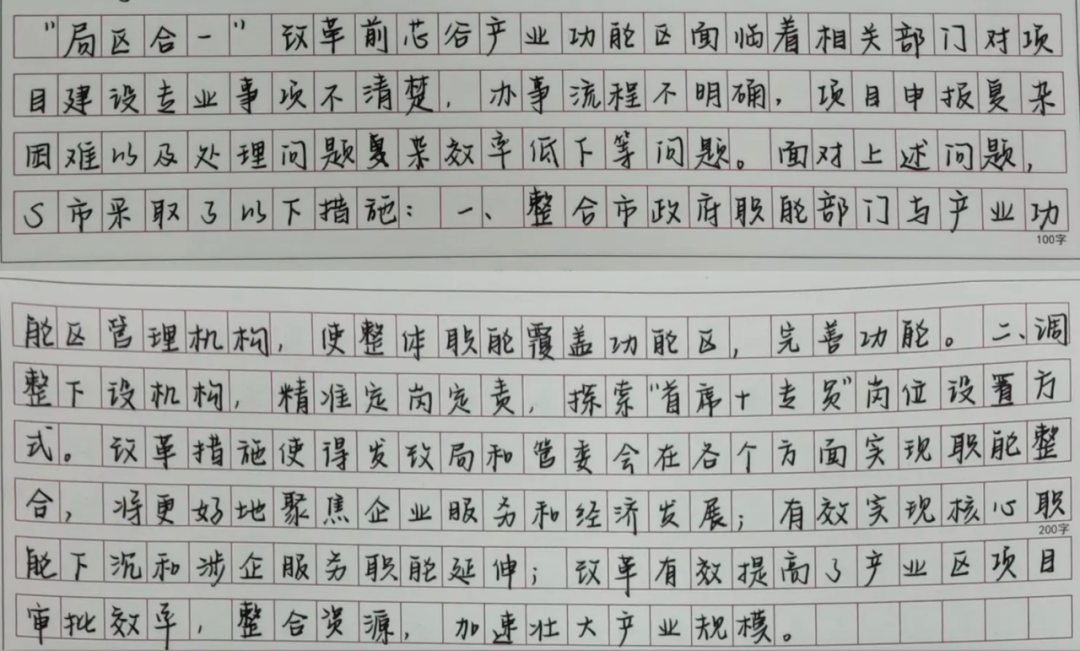 “局区合一”改革前芯谷产业功能区面临着相关部门对项
目建设专业事项不清楚，办事流程不明确，项目申报复杂
困难以及处理问题复杂效率低下等问题。面对上述问题，
S市采取了以下措施：一、整合市政府职能部门与产业功
100字
能区管理机构，使整体职能覆盖功能区，完善功能。二、调
整下设机构，精准定岗定责，探索“首席+专员”岗位设置方
式。改革措施使得发改局和管委会在各个方面实现职能整
合，将更好地聚焦企业服务和经济发展；有效实现核心职
200字
能下沉和涉企服务职能延伸；改革有效提高了产业区项目
审批效率，整合资源，加速壮大产业规模。